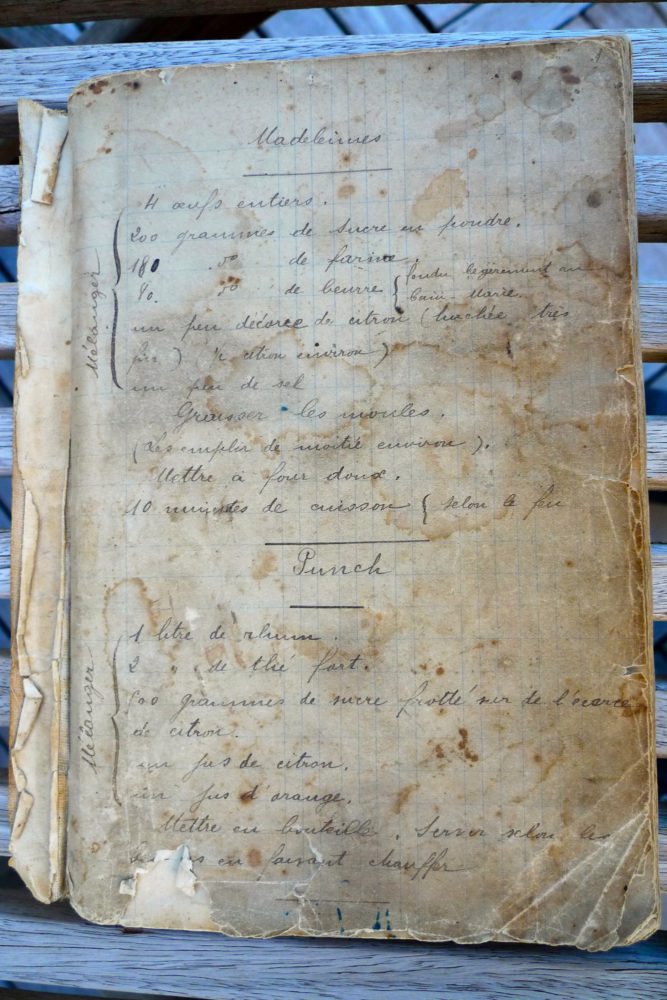 Madeleines
4 œufs entiers.
200 grammes de sucre en poudre.
180 " de farine.
80. " de beurre { fondu légèrement au
bain-Marie.
un peu d'écorce de citron (hachée très
fin) (½ citron environ)
un peu de sel
Mélanger
Graisser les moules.
(Les emplir de moitié environ).
Mettre à four doux.
10 minutes de cuisson { selon le feu
Punch
1 litre de rhum.
2 " de thé fort.
grammes de sucre frotté sur de l'écorce
de citron.
un jus de citron.
un jus d'orange.
Mélanger
Mettre en bouteille. Servir selon les
en faisant chauffer